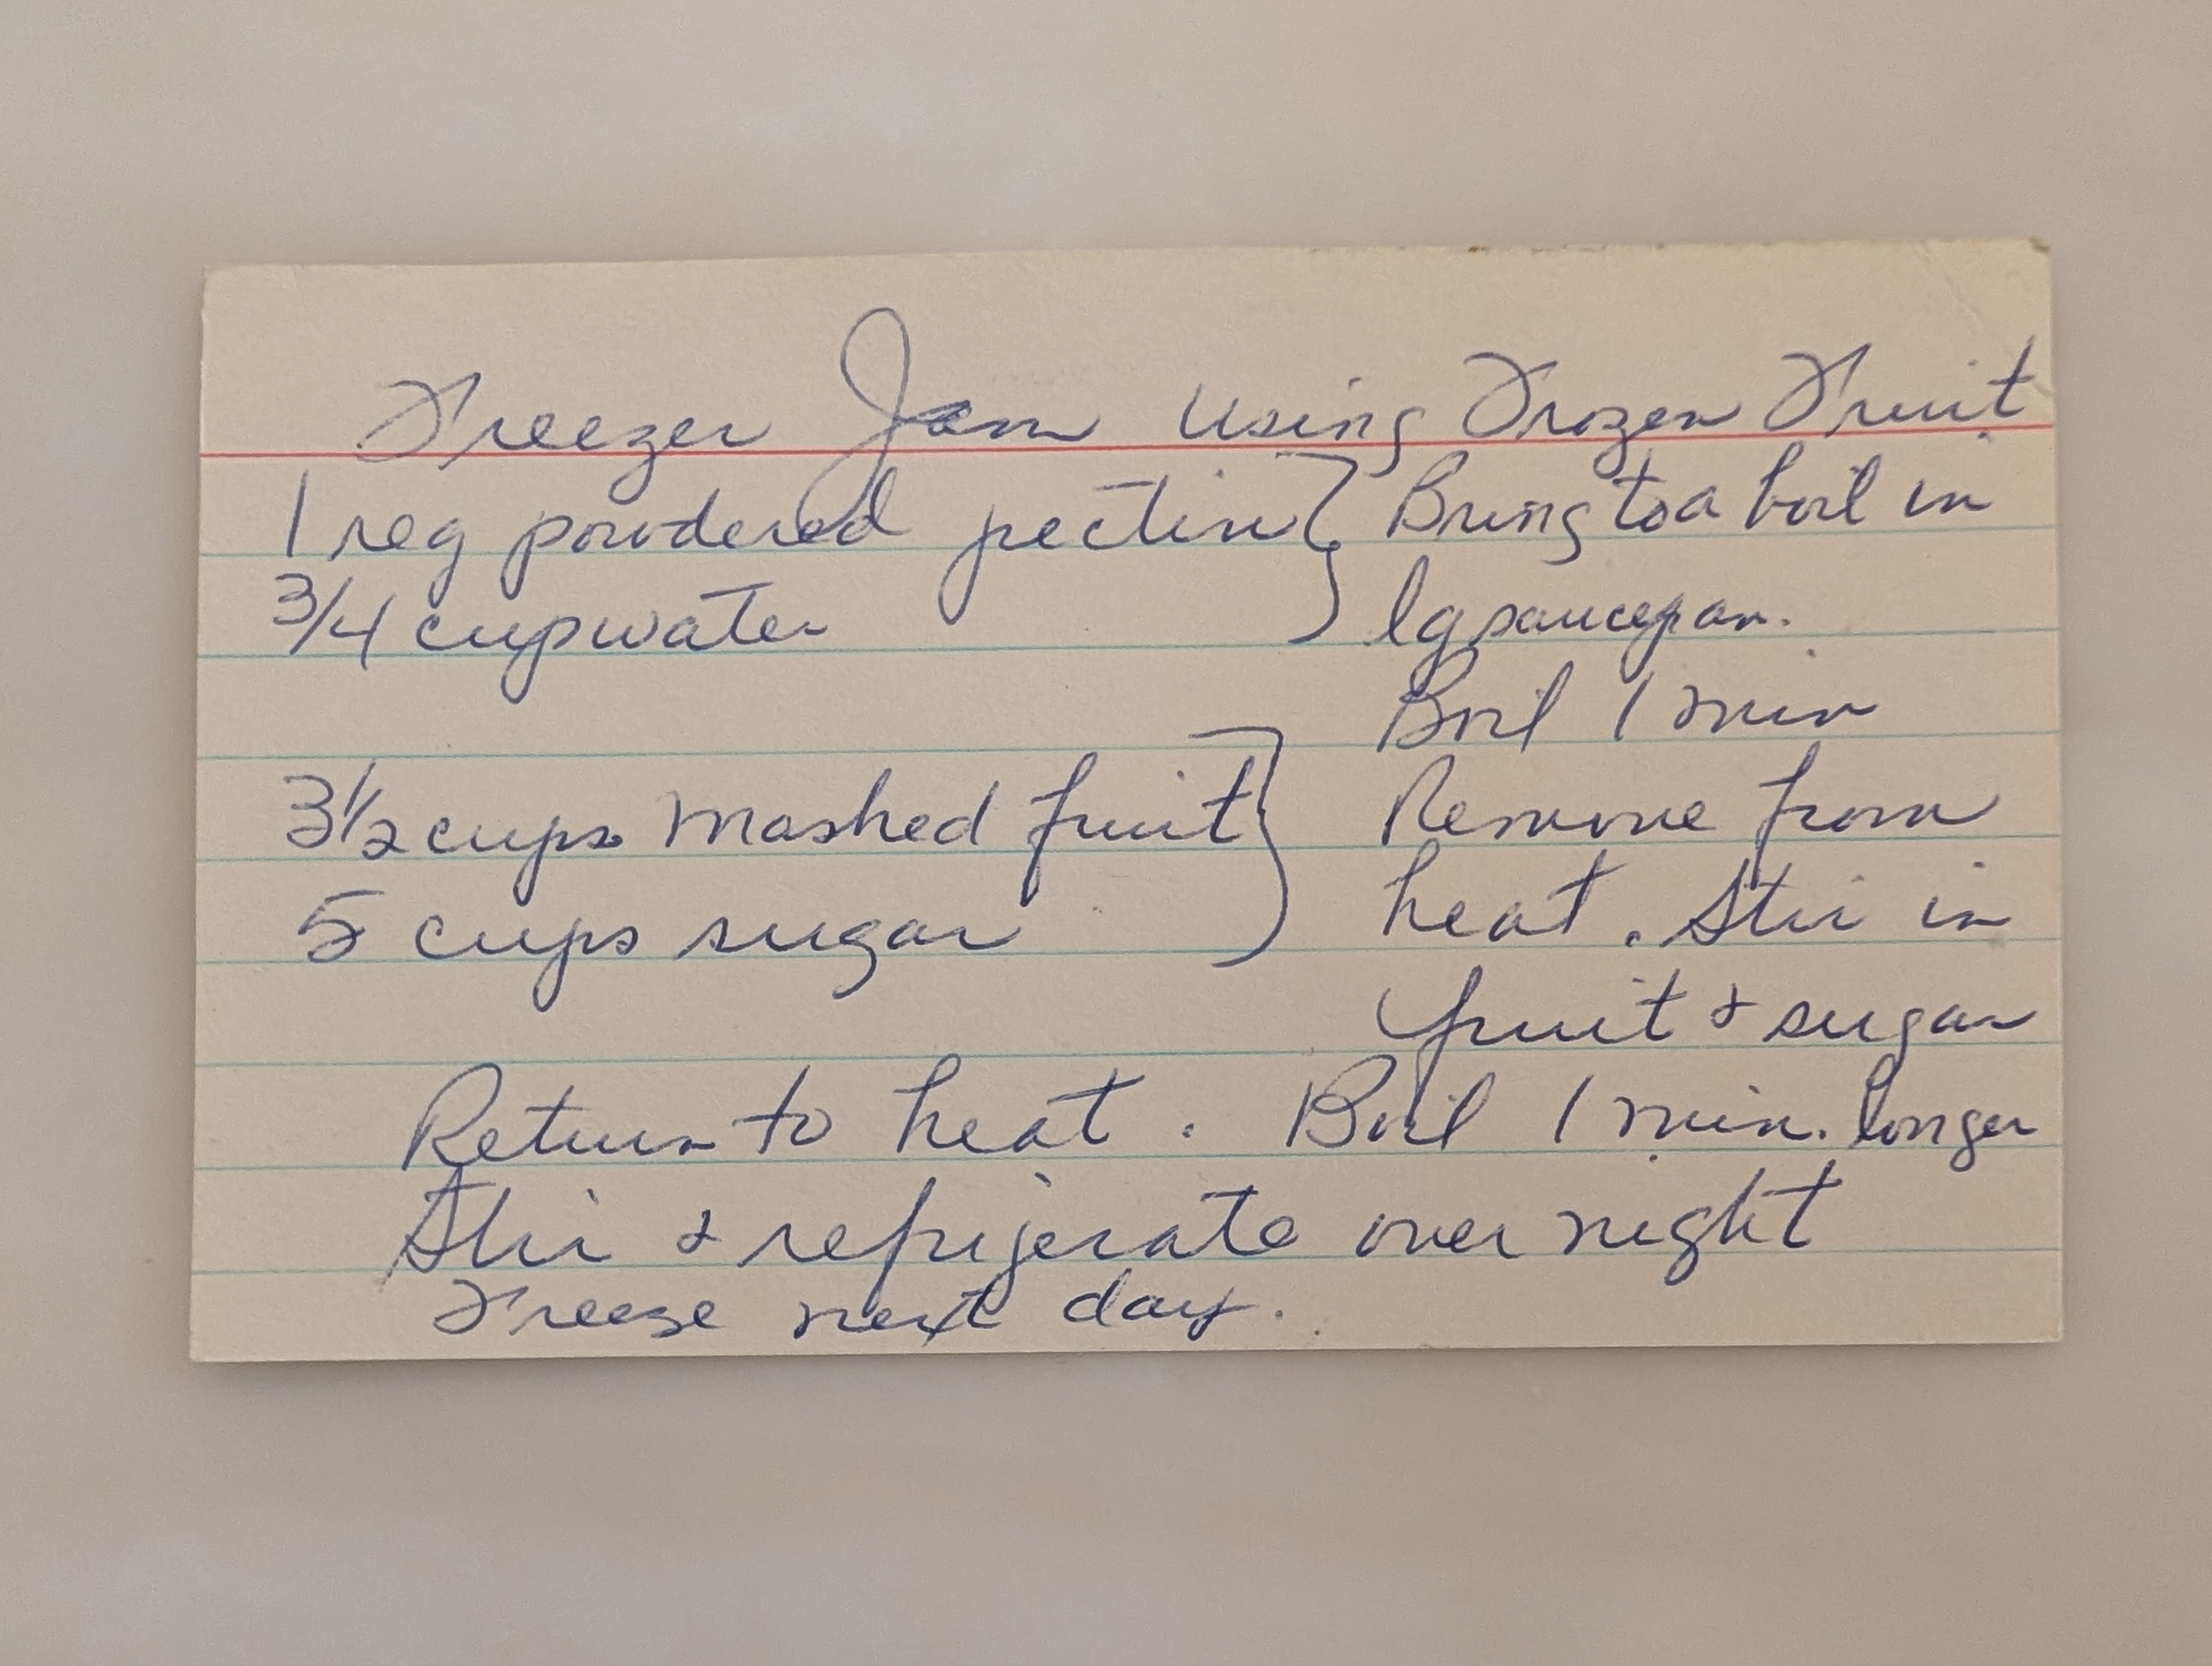 Freezer Jam using Frozen Fruit
1 reg powdered pectin } Bring to a boil in
3/4 cup water lg saucepan.
Boil 1 min
3 1/2 cups mashed fruit } Remove from
5 cups sugar heat. Stir in
fruit & sugar
Return to heat. Boil 1 min. longer
Stir & refrigerate over night
Freeze next day.